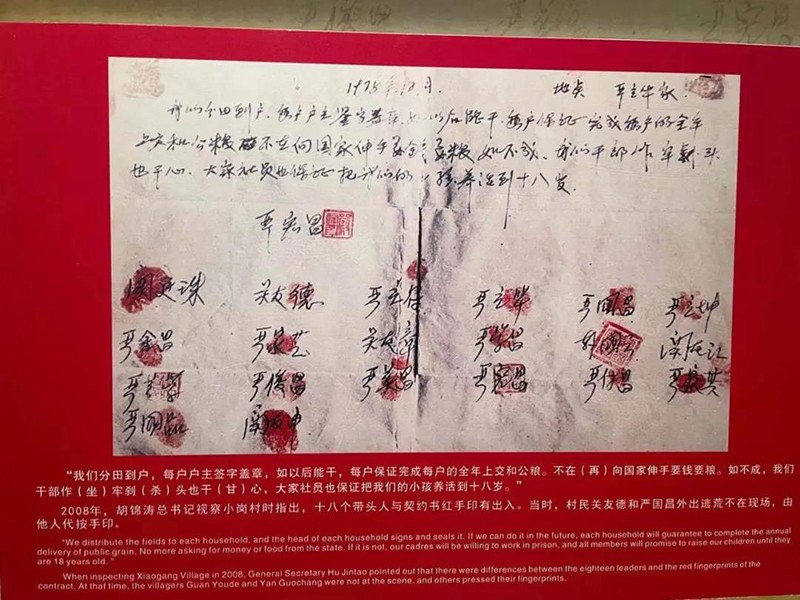 1978年12月. 地点 严立华家
我们分田到户，每户户主签字盖章，如以后能干，每户保证完成每户的全年
上交和公粮 不在向国家伸手要钱要粮 如不成，我们干部作牢刹头
也干心，大家社员也保证把我们的小孩养活到十八岁。
严宏昌
关廷珠 关友德 严立符 严立华 严国昌 严立坤
严金昌 严家芝 关友章 严学昌 韩国云 关友江
严立学 严俊昌 严美昌 严宏昌 严付昌 严家其
严国品 关友申
“我们分田到户，每户户主签字盖章，如以后能干，每户保证完成每户的全年上交和公粮。不在（再）向国家伸手要钱要粮。如不成，我们
干部作（坐）牢刹（杀）头也干（甘）心，大家社员也保证把我们的小孩养活到十八岁。”
2008年，胡锦涛总书记视察小岗村时指出，十八个带头人与契约书红手印有出入。当时，村民关友德和严国昌外出逃荒不在现场，由
他人代按手印。
"We distribute the fields to each household, and the head of each household signs and seals it. If we can do it in the future, each household will guarantee to complete the annual
delivery of public grain. No more asking for money or food from the state. If it is not, our cadres will be willing to work in prison, and all members will promise to raise our children until they
are 18 years old."
When inspecting Xiaogang Village in 2008, General Secretary Hu Jintao pointed out that there were differences between the eighteen leaders and the red fingerprints of the
contract. At that time, the villagers Guan Youde and Yan Guochang were not at the scene, and others pressed their fingerprints.